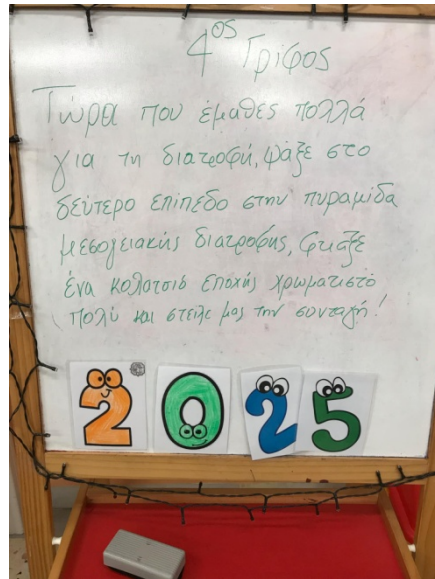 4ος Γρίφος
Τώρα που έμαθες πολλά
για τη διατροφή, ψάξε στο
δεύτερο επίπεδο στην πυραμίδα
μεσογειακής διατροφής, φτιάξε
ένα κολατσιό εποχής χρωματιστό
πολύ και στείλε μας την συνταγή!
2025